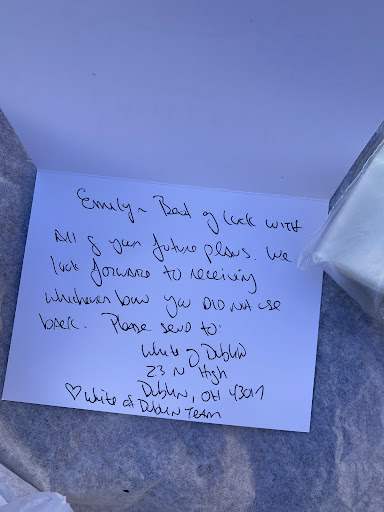 Emily~ Best of luck with
All of your future plans. We
look forward to receiving
whichever bow you DID not use
back. Please send to:
White of Dublin
23 N High
Dublin, OH 43017
♡ White of Dublin Team